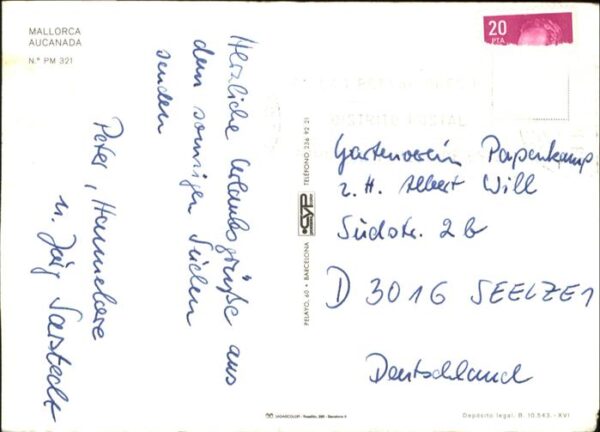 MALLORCA
AUCANADA
N.º PM 321
Herzliche Urlaubsgrüße aus
dem sonnigen Süden
senden
Peter, Hannelore
u. Jörg Sarstedt
20
PTA
DISTRITO POSTAL
Gartenverein Papenkamp
z. H. Albert Will
Südstr. 2b
D 3016 SEELZE 1
Deutschland
PELAYO, 60 • BARCELONA
CYP
TELÉFONO, 236 92 21
Depósito legal: B. 10.543.-XVI